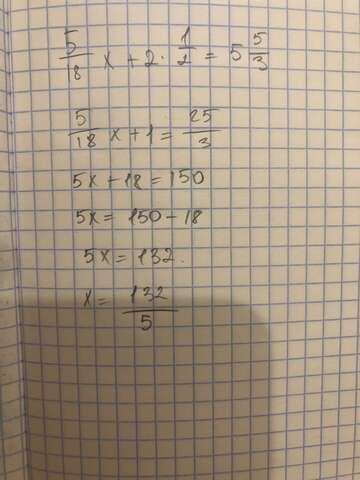 5/18 x + 2 · 1/2 = 5 5/3
5/18 x + 1 = 25/3
5x + 18 = 150
5x = 150 - 18
5x = 132.
x = 132/5